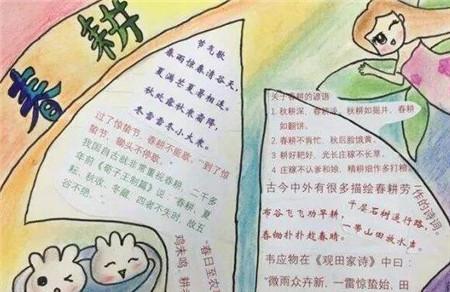 春耕
节气歌
春雨惊春清谷天,
夏满芒夏暑相连。
秋处露秋寒霜降,
冬雪雪冬小大寒。
过了惊蛰节,春耕不能歇。"到了惊
蛰节,锄头不停歇。"
我国自古就非常重视春耕,二千多
年前《荀子王制篇》说:"春耕、夏
耘、秋收、冬藏,四者不失时,故五
谷不绝。"
"春日至农
鸡未鸣,耕
关于春耕的谚语
1 秋耕深、春耕浅,秋耕如掘井、春耕
如翻饼。
2 春耕不肯忙,秋后脸饿黄。
3 耕好耙好,光长庄稼不长草。
4 庄稼不认爹和娘,精耕细作多打粮。
古今中外有很多描绘春耕劳作的诗词。
布谷飞飞劝早耕,
春锄扑扑趁春晴。
千层石树通行路,
一带山田放水声。
韦应物在《观田家诗》中曰:
"微雨众卉新,一雷惊蛰始,田